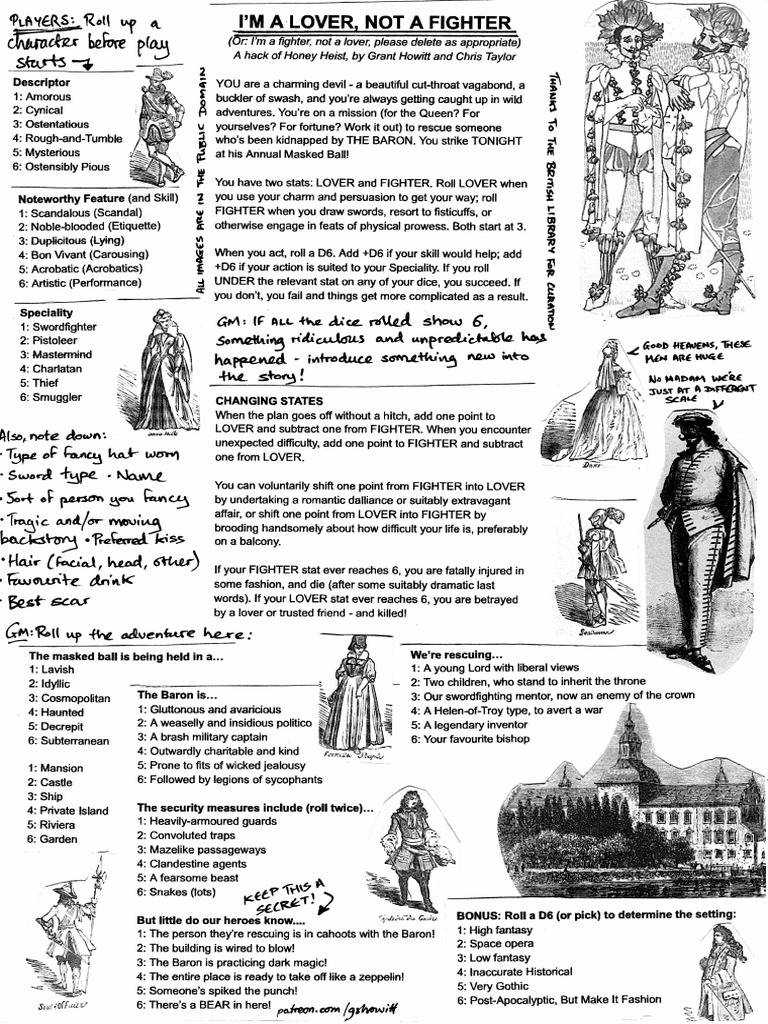 PLAYERS: Roll up a
character before play
starts →
Descriptor
1: Amorous
2: Cynical
3: Ostentatious
4: Rough-and-Tumble
5: Mysterious
6: Ostensibly Pious
Noteworthy Feature (and Skill)
1: Scandalous (Scandal)
2: Noble-blooded (Etiquette)
3: Duplicitous (Lying)
4: Bon Vivant (Carousing)
5: Acrobatic (Acrobatics)
6: Artistic (Performance)
Speciality
1: Swordfighter
2: Pistoleer
3: Mastermind
4: Charlatan
5: Thief
6: Smuggler
Also, note down:
• Type of fancy hat worn
• Sword type • Name
• Sort of person you fancy
• Tragic and/or moving
backstory • Preferred kiss
• Hair (facial, head, other)
• Favourite drink
• Best scar
ALL IMAGES ARE IN THE PUBLIC DOMAIN
I'M A LOVER, NOT A FIGHTER
(Or: I'm a fighter, not a lover, please delete as appropriate)
A hack of Honey Heist, by Grant Howitt and Chris Taylor
YOU are a charming devil - a beautiful cut-throat vagabond, a
buckler of swash, and you're always getting caught up in wild
adventures. You're on a mission (for the Queen? For
yourselves? For fortune? Work it out) to rescue someone
who's been kidnapped by THE BARON. You strike TONIGHT
at his Annual Masked Ball!
You have two stats: LOVER and FIGHTER. Roll LOVER when
you use your charm and persuasion to get your way; roll
FIGHTER when you draw swords, resort to fisticuffs, or
otherwise engage in feats of physical prowess. Both start at 3.
When you act, roll a D6. Add +D6 if your skill would help; add
+D6 if your action is suited to your Speciality. If you roll
UNDER the relevant stat on any of your dice, you succeed. If
you don't, you fail and things get more complicated as a result.
GM: IF ALL the dice rolled show 6,
something ridiculous and unpredictable has
happened - introduce something new into
the story!
THANKS TO THE BRITISH LIBRARY FOR CURATION
CHANGING STATES
When the plan goes off without a hitch, add one point to
LOVER and subtract one from FIGHTER. When you encounter
unexpected difficulty, add one point to FIGHTER and subtract
one from LOVER.
You can voluntarily shift one point from FIGHTER into LOVER
by undertaking a romantic dalliance or suitably extravagant
affair, or shift one point from LOVER into FIGHTER by
brooding handsomely about how difficult your life is, preferably
on a balcony.
If your FIGHTER stat ever reaches 6, you are fatally injured in
some fashion, and die (after some suitably dramatic last
words). If your LOVER stat ever reaches 6, you are betrayed
by a lover or trusted friend - and killed!
GOOD HEAVENS, THESE
MEN ARE HUGE
NO MADAM WE'RE
JUST AT A DIFFERENT
SCALE
Dame
GM: Roll up the adventure here:
The masked ball is being held in a...
1: Lavish
2: Idyllic
3: Cosmopolitan
4: Haunted
5: Decrepit
6: Subterranean
1: Mansion
2: Castle
3: Ship
4: Private Island
5: Riviera
6: Garden
The Baron is...
1: Gluttonous and avaricious
2: A weaselly and insidious politico
3: A brash military captain
4: Outwardly charitable and kind
5: Prone to fits of wicked jealousy
6: Followed by legions of sycophants
The security measures include (roll twice)...
1: Heavily-armoured guards
2: Convoluted traps
3: Mazelike passageways
4: Clandestine agents
5: A fearsome beast
6: Snakes (lots)
KEEP THIS A
SECRET!
But little do our heroes know....
1: The person they're rescuing is in cahoots with the Baron!
2: The building is wired to blow!
3: The Baron is practicing dark magic!
4: The entire place is ready to take off like a zeppelin!
5: Someone's spiked the punch!
6: There's a BEAR in here!
patreon.com/gshowitt
We're rescuing...
1: A young Lord with liberal views
2: Two children, who stand to inherit the throne
3: Our swordfighting mentor, now an enemy of the crown
4: A Helen-of-Troy type, to avert a war
5: A legendary inventor
6: Your favourite bishop
BONUS: Roll a D6 (or pick) to determine the setting:
1: High fantasy
2: Space opera
3: Low fantasy
4: Inaccurate Historical
5: Very Gothic
6: Post-Apocalyptic, But Make It Fashion